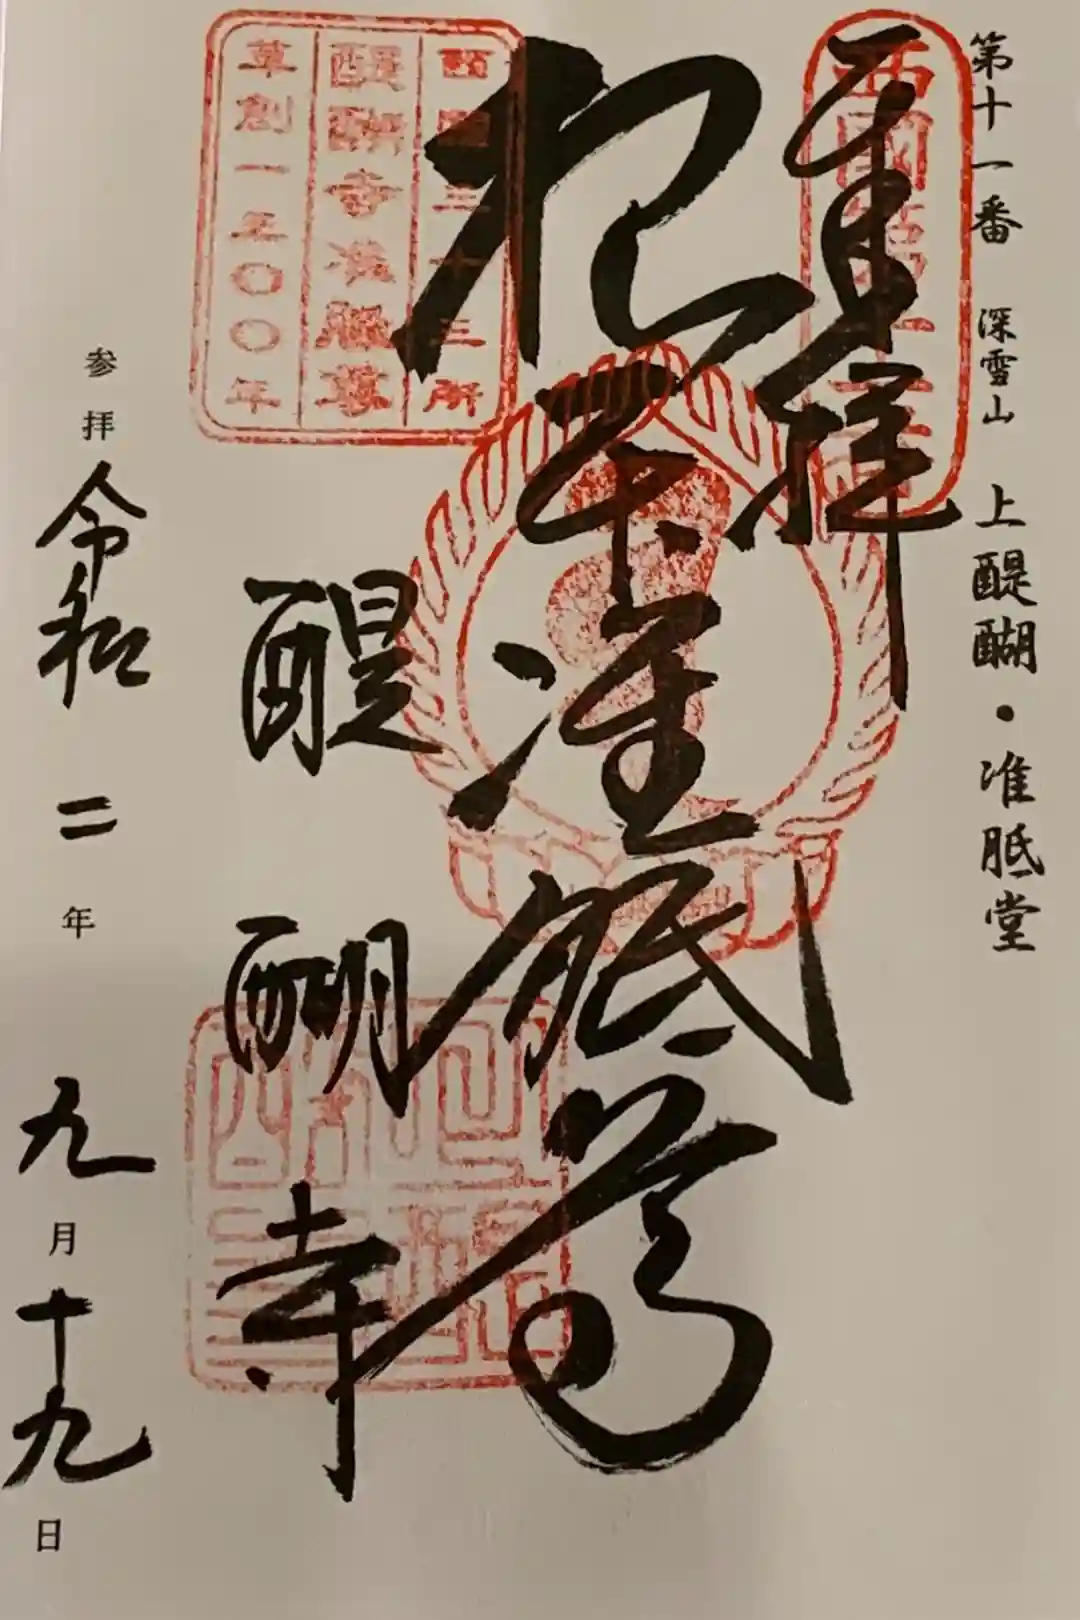 第十一番 深雪山 上醍醐・准胝堂
西國第十一番
重拝
根本准胝尊
西国三十三所
醍醐寺准胝尊
草創一三〇〇年
醍醐寺
参拝 令和二年九月十九日